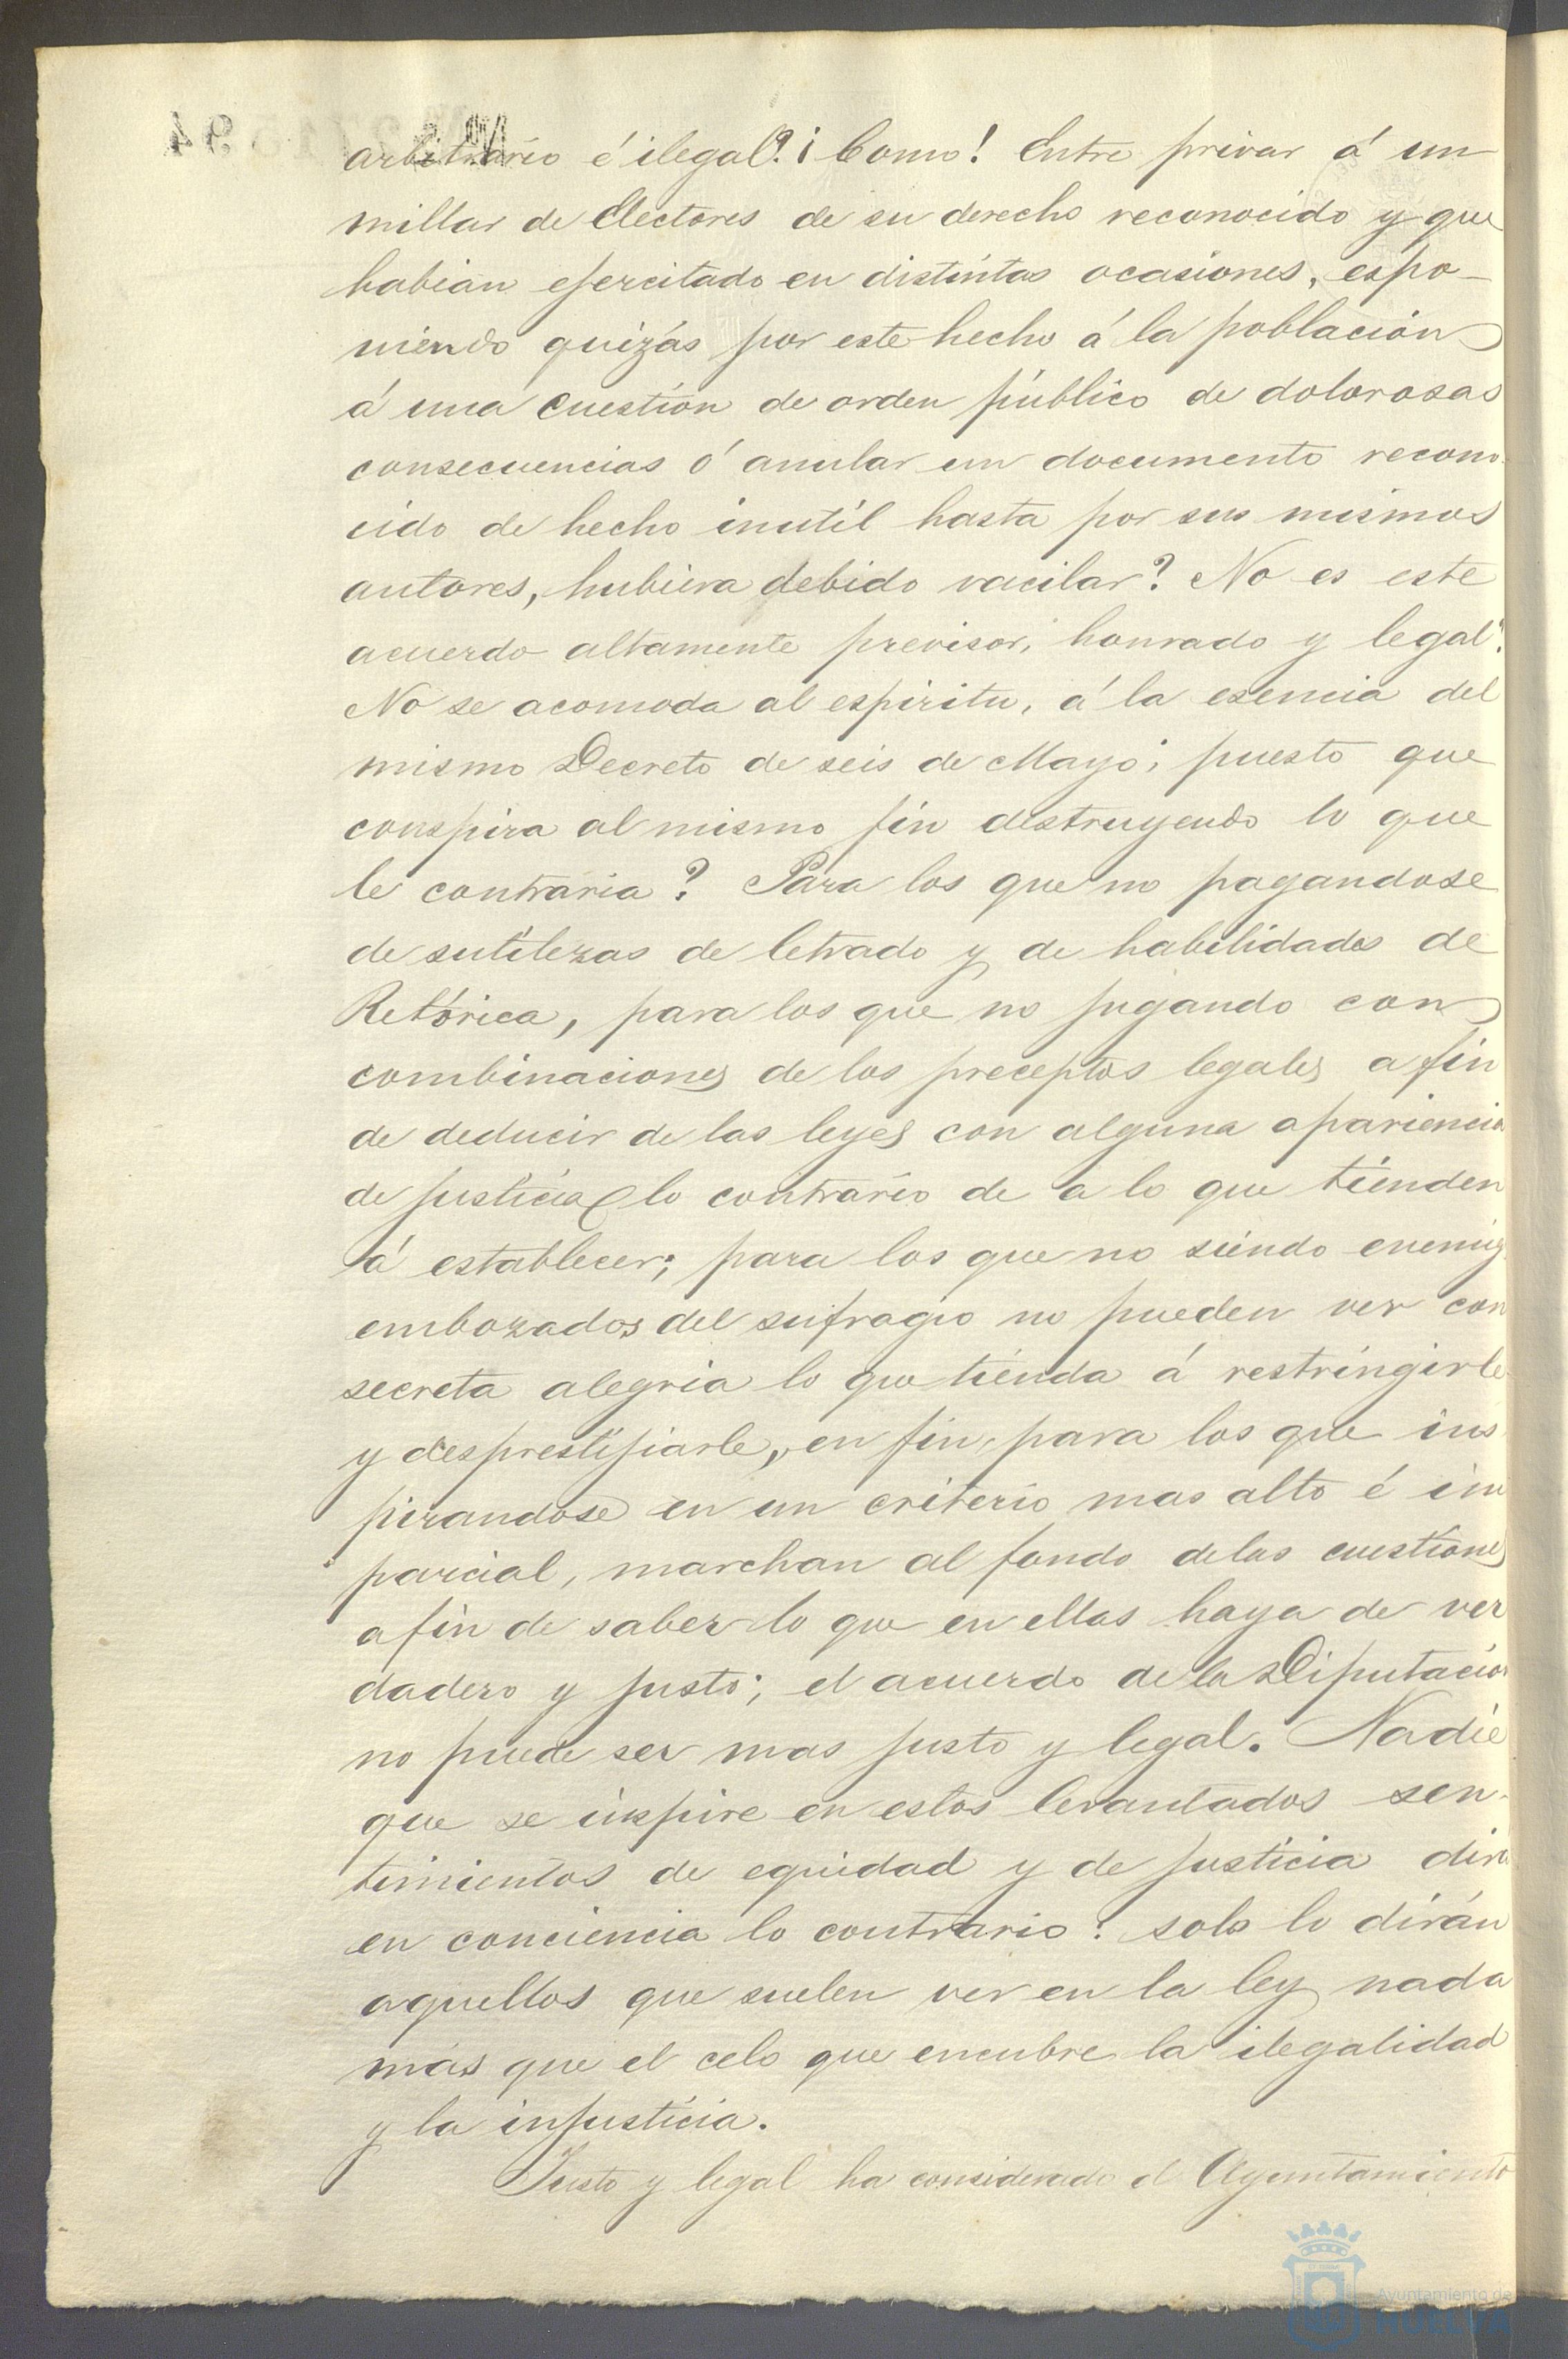 arbitrario é ilegal? ¡Como! Entre privar á un
millar de Electores de su derecho reconocido y que
habian ejercitado en distintas ocasiones, espo-
niendo quizás por este hecho á la población
á una cuestión de orden público de dolorosas
consecuencias ó anular un documento recono-
cido de hecho inutil hasta por sus mismos
autores, hubiera debido vacilar? No es este
acuerdo altamente previsor, honrado y legal?
No se acomoda al espiritu, á la esencia del
mismo Decreto de seis de Mayo; puesto que
conspira al mismo fin destruyendo lo que
le contraria? Para los que no pagandose
de sutilezas de letrado y de habilidades de
Retórica, para los que no jugando con
combinaciones de los preceptos legales a fin
de deducir de las leyes con alguna apariencia
de justicia lo contrario de a lo que tienden
á establecer; para los que no siendo enemig
embozados del sufragio no pueden ver con
secreta alegria lo que tienda á restringirle
y desprestijiarle, en fin, para los que ins
pirandose en un criterio mas alto é im
parcial, marchan al fondo de las cuestiones
a fin de saber lo que en ellas haya de ver
dadero y justo; el acuerdo de la Diputacion
no puede ser mas justo y legal. Nadie
que se inspire en estos levantados sen-
timientos de equidad y de justicia dirá
en conciencia lo contrario: solo lo dirán
aquellos que suelen ver en la ley nada
más que el celo que encubre la ilegalidad
y la injusticia.
Justo y legal ha considerado el Ayuntamiento
Ayuntamiento de
HUELVA